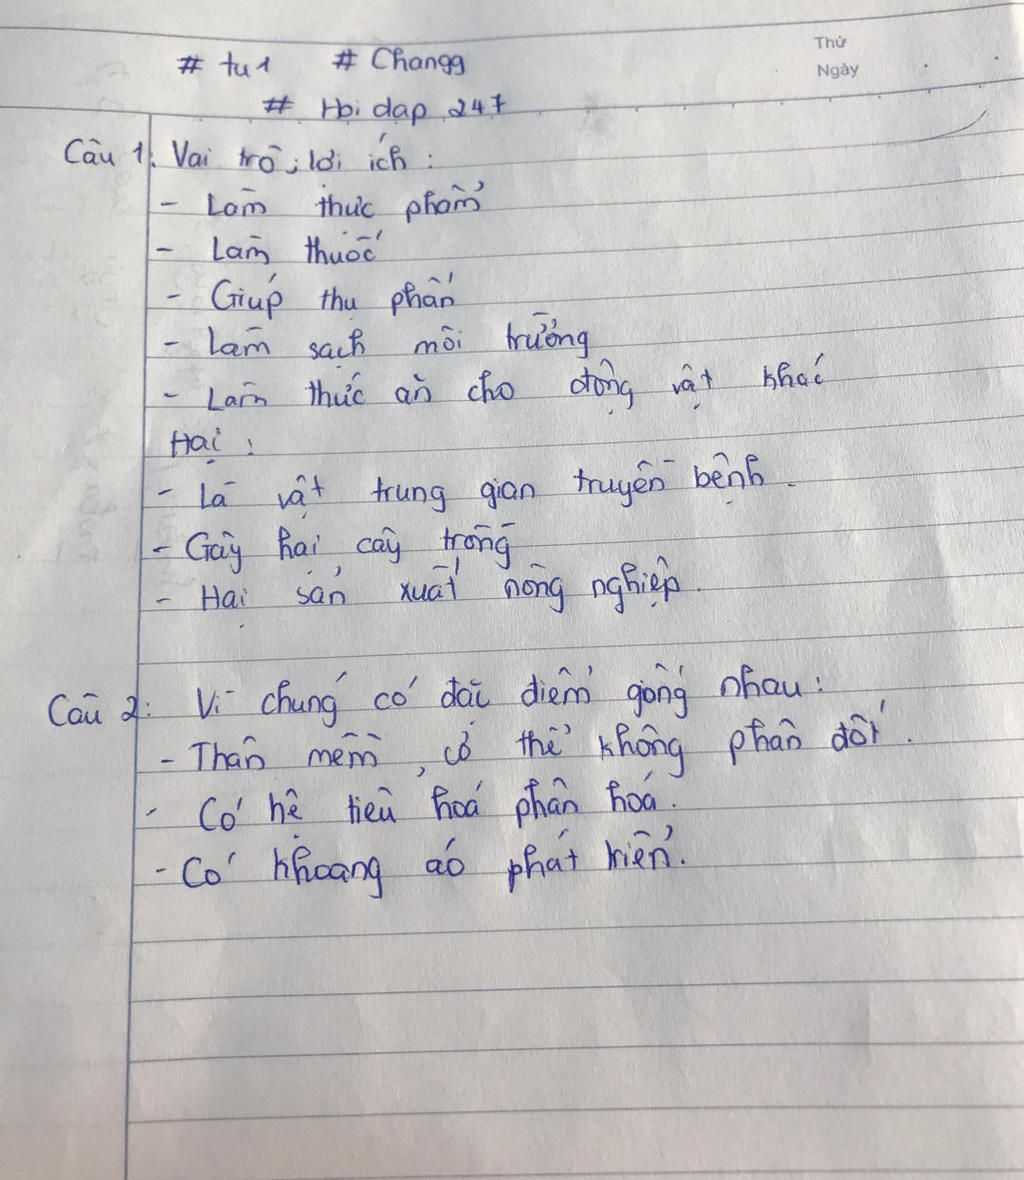 Thứ
# tu1 # Changg
Ngày
# Hỏi dap 247
Câu 1: Vai trò, lợi ích :
- Làm thực phẩm
- Làm thuốc
- Giúp thụ phấn
- Làm sạch môi trường
- Làm thức ăn cho động vật khác
Hại :
- Là vật trung gian truyền bệnh.
- Gây hại cây trồng
- Hại sản xuất nông nghiệp.
Câu 2: Vì chúng có đặc điểm giống nhau :
- Thân mềm, cơ thể không phân đốt.
- Có hệ tiêu hoá phân hoá.
- Có khoang áo phát triển.